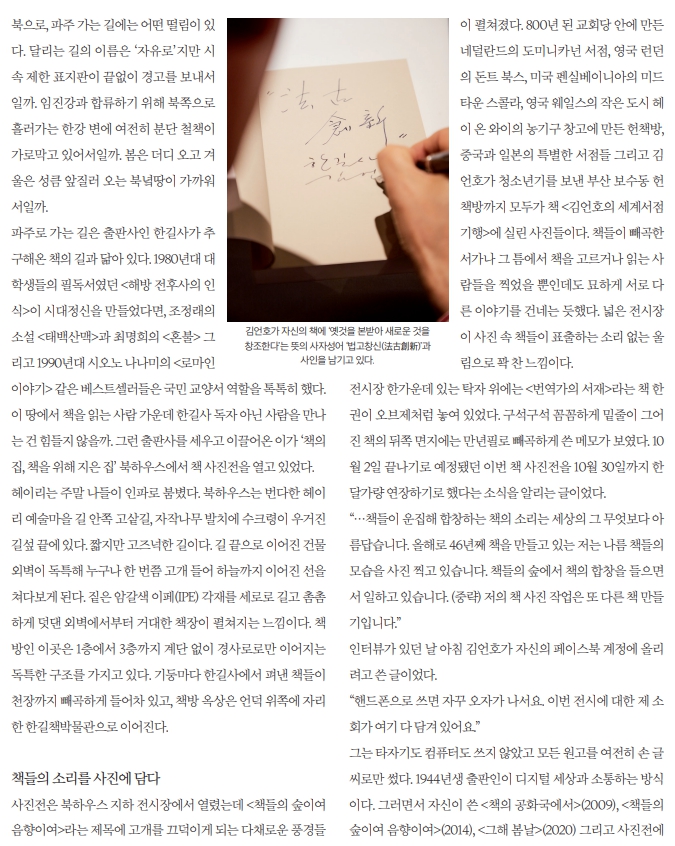 북으로, 파주 가는 길에는 어떤 떨림이 있
다. 달리는 길의 이름은 ‘자유로’지만 시
속 제한 표지판이 끝없이 경고를 보내서
일까. 임진강과 합류하기 위해 북쪽으로
흘러가는 한강 변에 여전히 분단 철책이
가로막고 있어서일까. 봄은 더디 오고 겨
울은 성큼 앞질러 오는 북녘땅이 가까워
서일까.
파주로 가는 길은 출판사인 한길사가 추
구해온 책의 길과 닮아 있다. 1980년대 대
학생들의 필독서였던 <해방 전후사의 인
식>이 시대정신을 만들었다면, 조정래의
소설 <태백산맥>과 최명희의 <혼불> 그
리고 1990년대 시오노 나나미의 <로마인
이야기> 같은 베스트셀러들은 국민 교양서 역할을 톡톡히 했다.
이 땅에서 책을 읽는 사람 가운데 한길사 독자 아닌 사람을 만나
는 건 힘들지 않을까. 그런 출판사를 세우고 이끌어온 이가 ‘책의
집, 책을 위해 지은 집’ 북하우스에서 책 사진전을 열고 있었다.
헤이리는 주말 나들이 인파로 붐볐다. 북하우스는 번다한 헤이
리 예술마을 길 안쪽 고샅길, 자작나무 발치에 수크령이 우거진
길섶 끝에 있다. 짧지만 고즈넉한 길이다. 길 끝으로 이어진 건물
외벽이 독특해 누구나 한 번쯤 고개 들어 하늘까지 이어진 선을
쳐다보게 된다. 짙은 암갈색 이페(IPE) 각재를 세로로 길고 촘촘
하게 덧댄 외벽에서부터 거대한 책장이 펼쳐지는 느낌이다. 책
방인 이곳은 1층에서 3층까지 계단 없이 경사로로만 이어지는
독특한 구조를 가지고 있다. 기둥마다 한길사에서 펴낸 책들이
천장까지 빼곡하게 들어차 있고, 책방 옥상은 언덕 위쪽에 자리
한 한길책박물관으로 이어진다.
책들의 소리를 사진에 담다
사진전은 북하우스 지하 전시장에서 열렸는데 <책들의 숲이여
음향이여>라는 제목에 고개를 끄덕이게 되는 다채로운 풍경들
“法古
創新”
한길사
김언호가 자신의 책에 ‘옛것을 본받아 새로운 것을
창조한다’는 뜻의 사자성어 ‘법고창신(法古創新)’과
사인을 남기고 있다.
이 펼쳐졌다. 800년 된 교회당 안에 만든
네덜란드의 도미니카넌 서점, 영국 런던
의 돈트 북스, 미국 펜실베이니아의 미드
타운 스콜라, 영국 웨일스의 작은 도시 헤
이 온 와이의 농기구 창고에 만든 헌책방,
중국과 일본의 특별한 서점들 그리고 김
언호가 청소년기를 보낸 부산 보수동 헌
책방까지 모두가 책 <김언호의 세계서점
기행>에 실린 사진들이다. 책들이 빼곡한
서가나 그 틈에서 책을 고르거나 읽는 사
람들을 찍었을 뿐인데도 묘하게 서로 다
른 이야기를 건네는 듯했다. 넓은 전시장
이 사진 속 책들이 표출하는 소리 없는 울
림으로 꽉 찬 느낌이다.
전시장 한가운데 있는 탁자 위에는 <번역가의 서재>라는 책 한
권이 오브제처럼 놓여 있었다. 구석구석 꼼꼼하게 밑줄이 그어
진 책의 뒤쪽 면지에는 만년필로 빼곡하게 쓴 메모가 보였다. 10
월 2일 끝나기로 예정됐던 이번 책 사진전을 10월 30일까지 한
달가량 연장하기로 했다는 소식을 알리는 글이었다.
“…책들이 운집해 합창하는 책의 소리는 세상의 그 무엇보다 아
름답습니다. 올해로 46년째 책을 만들고 있는 저는 나름 책들의
모습을 사진 찍고 있습니다. 책들의 숲에서 책의 합창을 들으면
서 일하고 있습니다. (중략) 저의 책 사진 작업은 또 다른 책 만들
기입니다.”
인터뷰가 있던 날 아침 김언호가 자신의 페이스북 계정에 올리
려고 쓴 글이었다.
“핸드폰으로 쓰면 자꾸 오자가 나서요. 이번 전시에 대한 제 소
회가 여기 다 담겨 있어요.”
그는 타자기도 컴퓨터도 쓰지 않았고 모든 원고를 여전히 손 글
씨로만 썼다. 1944년생 출판인이 디지털 세상과 소통하는 방식
이다. 그러면서 자신이 쓴 <책의 공화국에서>(2009), <책들의
숲이여 음향이여>(2014), <그해 봄날>(2020) 그리고 사진전에